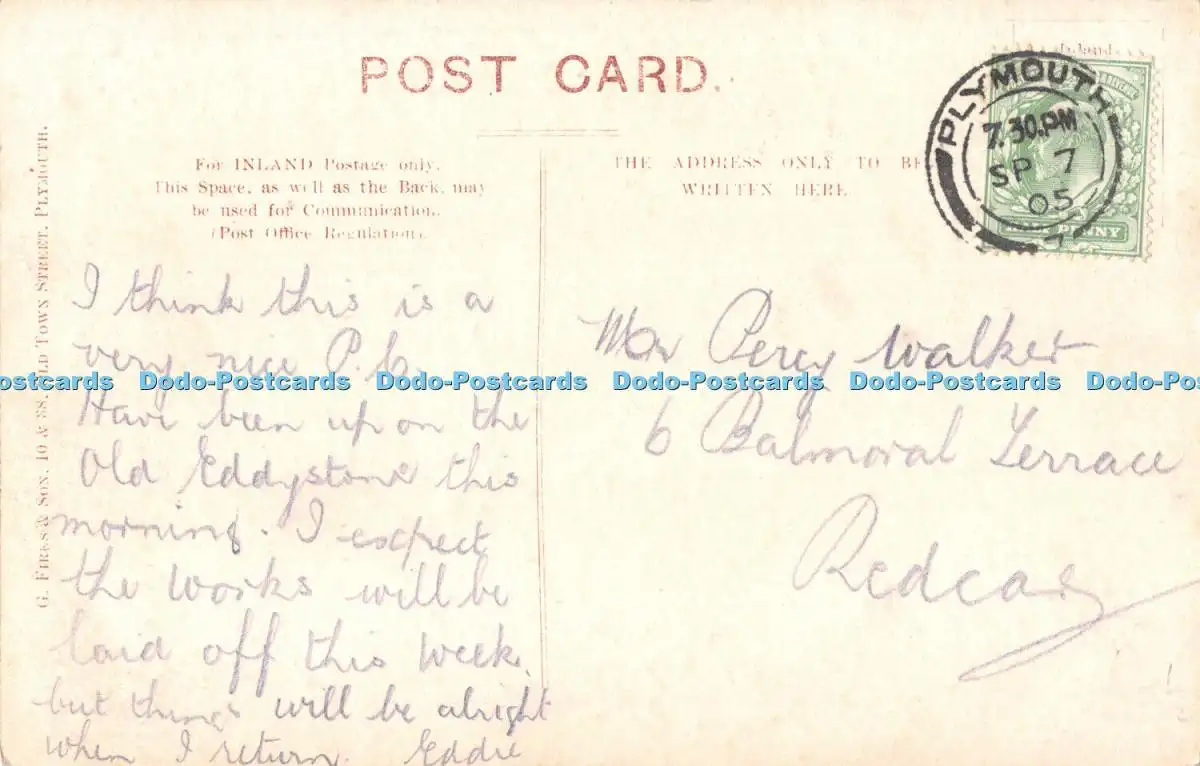 POST CARD.
For INLAND Postage only.
This Space, as well as the Back, may
be used for Communication.
(Post Office Regulation).
THE ADDRESS ONLY TO BE
WRITTEN HERE
Inland
PLYMOUTH
7.30.PM
SP 7
05
HALF PENNY
I think this is a
very nice P.C.
Have been up on the
Old Eddystone this
morning. I expect
the works will be
laid off this week,
but things will be alright
when I return. Eddie
Mr Percy Walker
6 Balmoral Terrace
Redcar
& SON, 10 & OLD TOWN STREET, PLYMOUTH.
Dodo-Postcards Dodo-Postcards Dodo-Postcards Dodo-Postcards Dodo-Postcards Dodo-Postcards